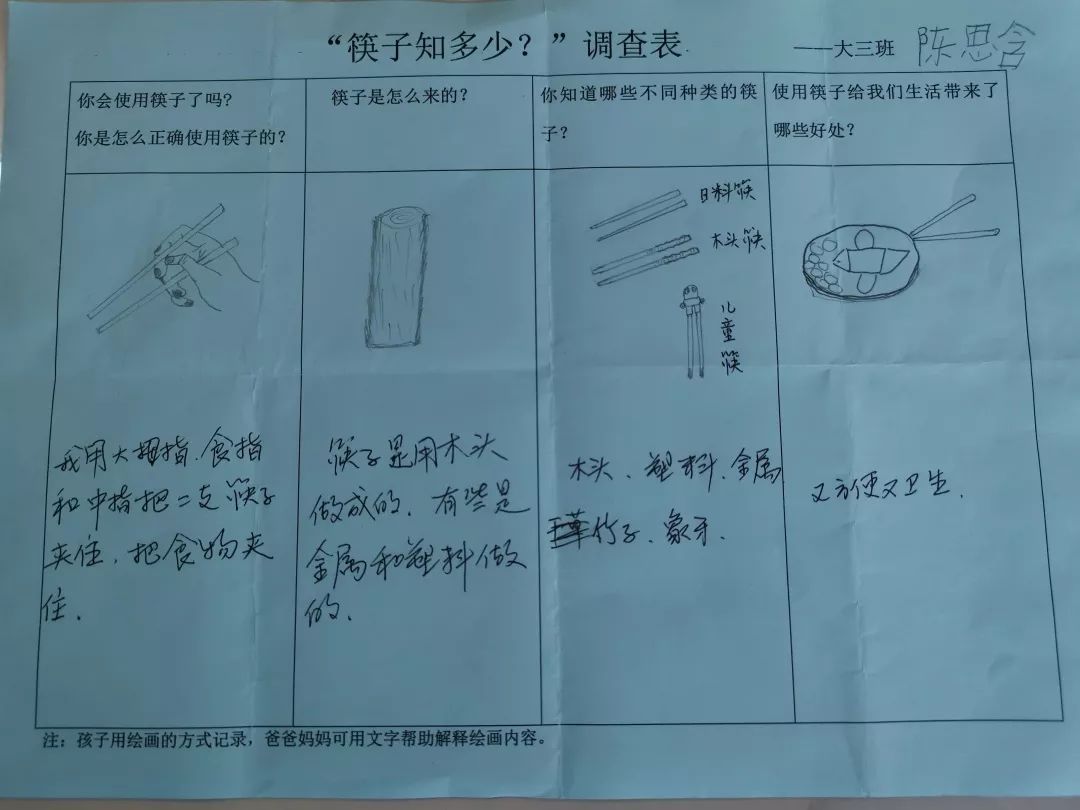 “筷子知多少？”调查表
——大三班 陈思含
你会使用筷子了吗?
你是怎么正确使用筷子的?
筷子是怎么来的?
你知道哪些不同种类的筷
子?
使用筷子给我们生活带来了
哪些好处?
我用大拇指、食指
和中指把二支筷子
夹住，把食物夹
住.
筷子是用木头
做成的，有些是
金属和塑料做
的.
日料筷
木头筷
儿童筷
木头、塑料、金属
竹子、象牙.
又方便又卫生.
注：孩子用绘画的方式记录，爸爸妈妈可用文字帮助解释绘画内容。